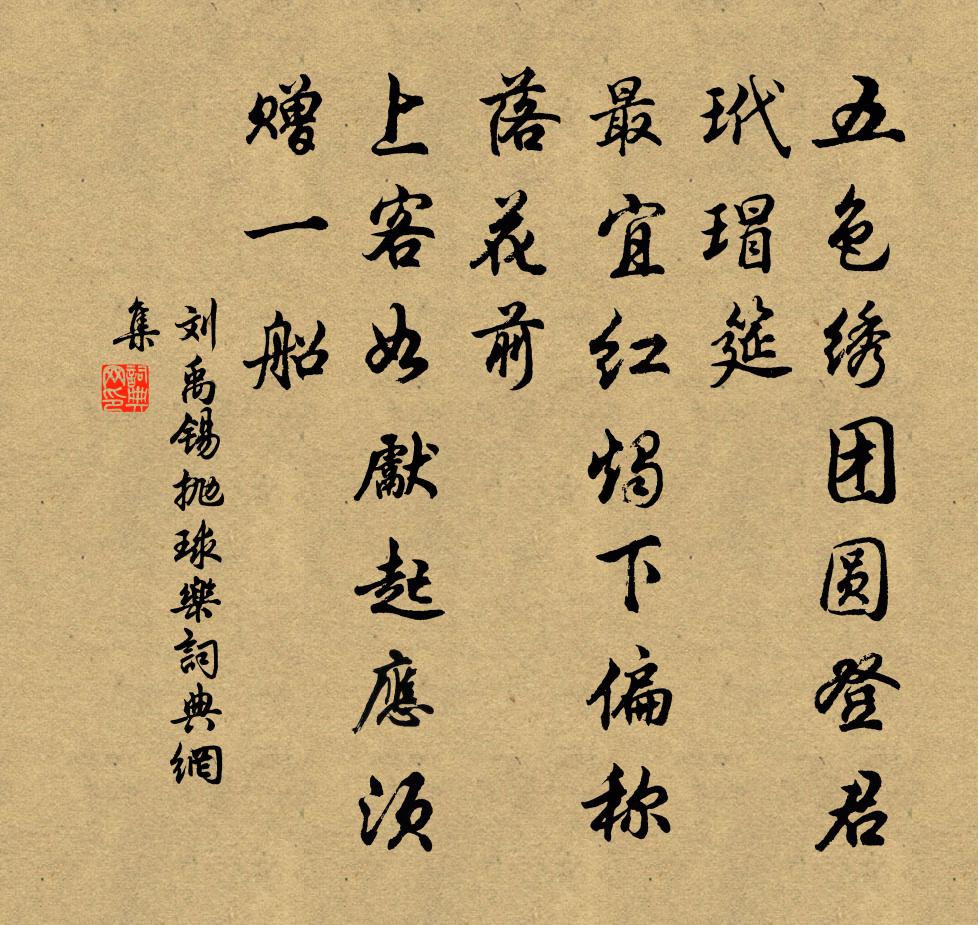 五色绣团圆登君
玳瑁筵
最宜红烛下偏称
落花前
上客如獻起應须
赠一船
刘禹锡抛球樂詞典網
集
詞典网印